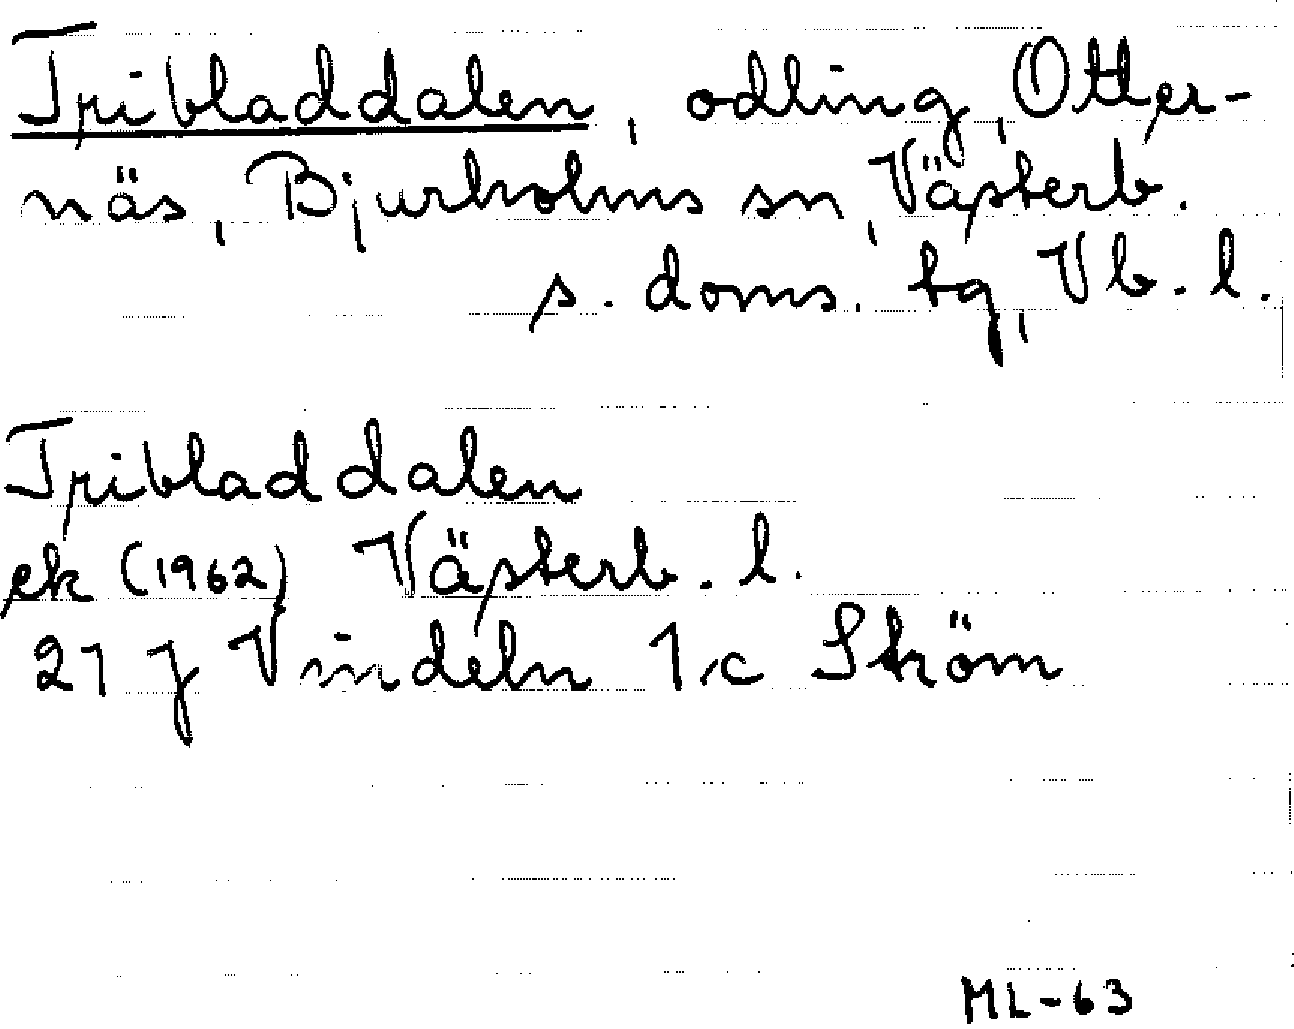 Tribladdalen, odling, Otter-
näs, Bjurholms sn, Västerb.
s. doms. bg, Vb. l.
Tribladdalen
ek (1962) Västerb. l.
21 J Vindeln 1c Sköm
ML-63